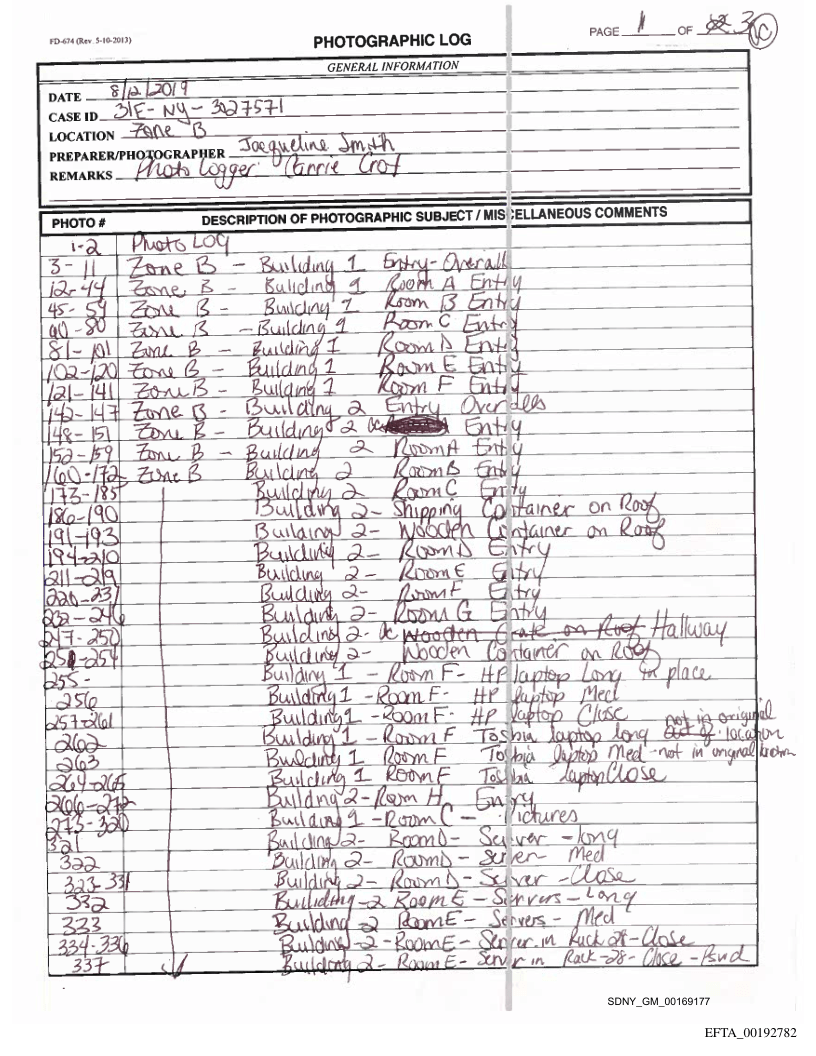 FD-674 (Rev. 5-10-2013)
PHOTOGRAPHIC LOG
PAGE 1 OF 3
GENERAL INFORMATION
DATE 8/12/2019
CASE ID 31E-NY-3027571
LOCATION Zone B
PREPARER/PHOTOGRAPHER Jacqueline Smith
REMARKS Photo Logger: Carrie
PHOTO # DESCRIPTION OF PHOTOGRAPHIC SUBJECT / MISCELLANEOUS COMMENTS
1-2 Photo LOG
3-11 Zone B - Building 1 Entry-Overall
12-44 Zone B - Building 1 Room A Entry
45-59 Zone B - Building 1 Room B Entry
60-80 Zone B - Building 1 Room C Entry
81-101 Zone B - Building 1 Room D Entry
102-120 Zone B - Building 1 Room E Entry
121-141 Zone B - Building 1 Room F Entry
142-147 Zone B - Building 2 Entry Overalls
148-151 Zone B - Building 2 Entry
152-159 Zone B - Building 2 Room A Entry
160-172 Zone B Building 2 Room B Entry
173-185 Building 2 Room C Entry
186-190 Building 2- Shipping Container on Roof
191-193 Building 2- Wooden Container on Roof
194-210 Building 2- Room D Entry
211-219 Building 2- Room E Entry
220-231 Building 2- Room F Entry
232-246 Building 2- Room G Entry
247-250 Building 2- Wooden Crate on Roof Hallway
251-254 Building 2- Wooden Container on Roof
255- Building 1 - Room F- HP laptop Long in place
256 Building 1 -Room F- HP laptop Med
257-261 Building 1 -Room F- HP laptop Close
262 Building 1 - Room F Toshia laptop long not in original location
263 Building 1 Room F Toshia laptop Med -not in original
264-265 Building 1 Room F Toshia laptop Close
266-272 Building 2-Room H Entry
273-320 Building 1 -Room C - Pictures
321 Building 2- Room D- Server -long
322 Building 2- Room D- server- Med
323-331 Building 2- Room D- Server -Close
332 Building -2 Room E- Servers- Long
333 Building -2 Room E- Servers- Med
334-336 Building-2-Room E- Server in Rack 28-Close
337 Building 2-Room E- Server in Rack-28-Close-
SDNY_GM_00169177
EFTA_00192782